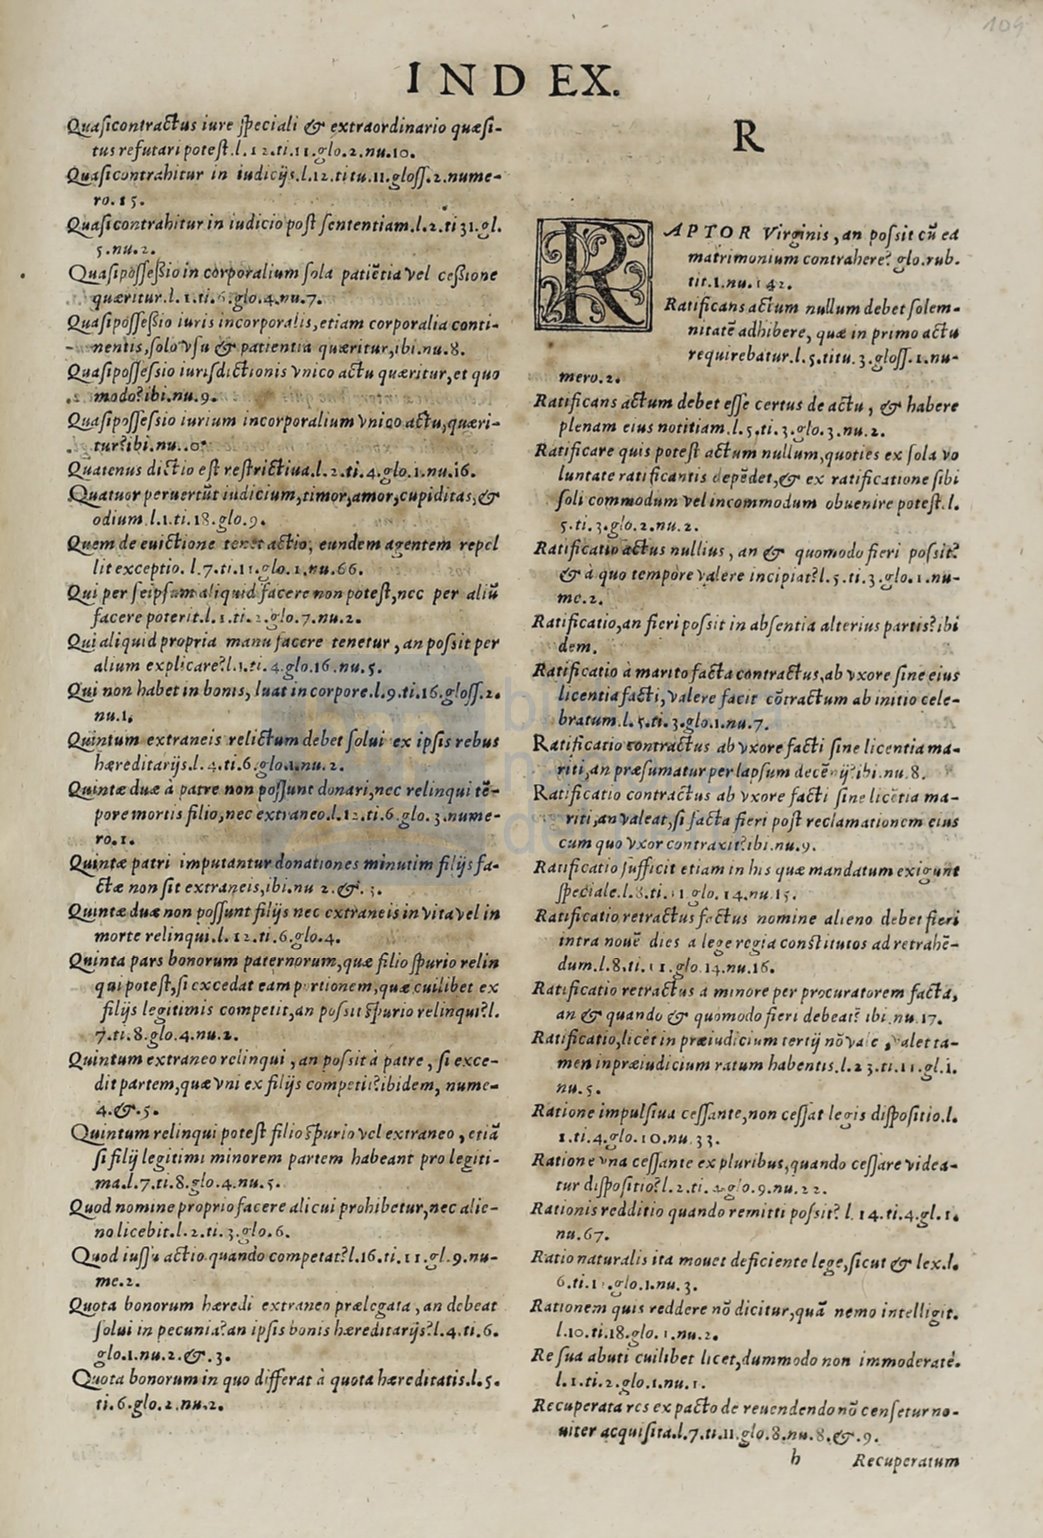 109
INDEX.
Quasicontractus iure speciali & extraordinario quæsi-
tus refutari potest.l.12.ti.11.glo.2.nu.10.
Quasicontrahitur in iudicijs.l.12.titu.11.gloss.2.nume-
ro.15.
Quasicontrahitur in iudicio post sententiam.l.2.ti 31.gl.
5.nu.2.
Quasipossessio in corporalium sola patiẽtia vel cessione
quæritur.l.1.ti.6.glo.4.nu.7.
Quasipossessio iuris incorporalis,etiam corporalia conti-
nentis,solo vsu & patientia quæritur,ibi.nu.8.
Quasipossessio iurisdictionis vnico actu quæritur,et quo
modo?ibi.nu.9.
Quasipossessio iurium incorporalium vnico actu,quæri-
tur?ibi.nu.
Quatenus dictio est restrictiua.l.2.ti.4.glo.1.nu.16.
Quatuor peruertũt iudicium,timor,amor,cupiditas,&
odium.l.1.ti.18.glo.9.
Quem de euictione tenet actio, eundem agentem repel
lit exceptio. l.7.ti.11.glo.1.nu.66.
Qui per seipsum aliquid facere non potest,nec per aliũ
facere poterit.l.1.ti.2.glo.7.nu.2.
Qui aliquid propria manu facere tenetur , an possit per
alium explicare?l.1.ti.4.glo.16.nu.5.
Qui non habet in bonis, luat in corpore.l.9.ti.16.gloss.2.
nu.1.
Quintum extraneis relictum debet solui ex ipsis rebus
hæreditarijs.l.4.ti.6.glo.1.nu.2.
Quintæ duæ a patre non possunt donari,nec relinqui tẽ-
pore mortis filio,nec extraneo.l.12.ti.6.glo.3.nume-
ro.1.
Quintæ patri imputantur donationes minutim filijs fa-
ctæ non sit extraneis,ibi.nu 2.&.3.
Quintæ duæ non possunt filijs nec extraneis in vita vel in
morte relinqui.l.12.ti.6.glo.4.
Quinta pars bonorum paternorum,quæ filio spurio relin
qui potest,si excedat eam portionem,quæ cuilibet ex
filijs legitimis competit,an possit spurio relinqui?l.
7.ti.8.glo.4.nu.2.
Quintum extraneo relinqui , an possit à patre , si exce-
dit partem,quæ vni ex filijs competit?ibidem, nume-
4.&.5.
Quintum relinqui potest filio spurio vel extraneo , etiã
si filij legitimi minorem partem habeant pro legiti-
ma.l.7.ti.8.glo.4.nu.5.
Quod nomine proprio facere alicui prohibetur,nec alie-
no licebit.l.2.ti.3.glo.6.
Quod iussu actio quando competat?l.16.ti.11.gl.9.nu-
me.2.
Quota bonorum hæredi extraneo prælegata , an debeat
solui in pecunia?an ipsis bonis hæreditarijs?l.4.ti.6.
glo.1.nu.2.&.3.
Quota bonorum in quo differat à quota hæreditatis.l.5.
ti.6.glo.2.nu.2.
R
RAPTOR Virginis , an possit cũ ea
matrimonium contrahere? glo.rub.
tit.1.nu.142.
Ratificans actum nullum debet solem-
nitatẽ adhibere, quæ in primo actu
requirebatur.l.5.titu.3.gloss.1.nu-
mero.2.
Ratificans actum debet esse certus de actu , & habere
plenam eius notitiam.l.5.ti.3.glo.3.nu.2.
Ratificare quis potest actum nullum,quoties ex sola vo
luntate ratificantis depẽdet,& ex ratificatione sibi
soli commodum vel incommodum obuenire potest.l.
5.ti.3.glo.2.nu.2.
Ratificatio actus nullius , an & quomodo fieri possit?
& à quo tempore valere incipiat?l.5.ti.3.glo.1.nu-
me.2.
Ratificatio,an fieri possit in absentia alterius partis?ibi
dem.
Ratificatio à marito facta contractus,ab vxore sine eius
licentia facti,valere facit cõtractum ab initio cele-
bratum.l.5.ti.3.glo.1.nu.7.
Ratificatio contractus ab vxore facti sine licentia ma-
riti,an præsumatur per lapsum decẽnij?ibi.nu.8.
Ratificatio contractus ab vxore facti sine licẽtia ma-
riti,an valeat,si facta fieri post reclamationem eius
cum quo vxor contraxit?ibi.nu.9.
Ratificatio sufficit etiam in his quæ mandatum exigunt
speciale.l.8.ti.11.glo.14.nu.15.
Ratificatio retractus factus nomine alieno debet fieri
intra nouẽ dies a lege regia constitutos ad retrahẽ-
dum.l.8.ti.11.glo.14.nu.16.
Ratificatio retractus à minore per procuratorem facta,
an & quando & quomodo fieri debeat? ibi.nu.17.
Ratificatio,licèt in præiudicium tertij nõ vale , valet ta-
men in præiudicium ratum habentis.l.23.ti.11.gl.1.
nu.5.
Ratione impulsiua cessante,non cessat legis dispositio.l.
1.ti.4.glo.10.nu.33.
Ratione vna cessante ex pluribus,quando cessare videa-
tur dispositio?l.2.ti. glo.9.nu.22.
Rationis redditio quando remitti possit? l.14.ti.4.gl.1.
nu.67.
Ratio naturalis ita mouet deficiente lege,sicut & lex.l.
6.ti.1.glo.1.nu.3.
Rationem quis reddere nõ dicitur,quã nemo intelligit.
l.10.ti.18.glo.1.nu.2.
Re sua abuti cuilibet licet,dummodo non immoderatè.
l.1.ti.2.glo.1.nu.1.
Recuperata res ex pacto de reuendendo nõ censetur no-
uiter acquisita.l.7.ti.11.glo.8.nu.8.&.9.
h Recuperatum